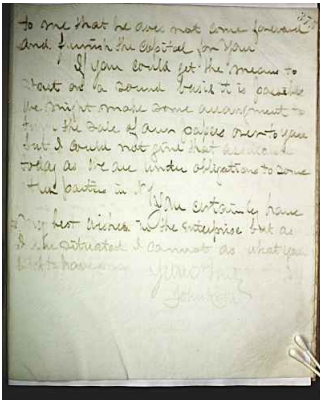 to me that he does not come forward
and furnish the capital for you
If you could get the means to
start on a sound basis it is possible
we might make some arrangement to
the sale of our papers over to you
but I could not give that
today as we are under obligations to some
parties in N.Y.
You certainly have
my best wishes in the enterprise but as
I am situated I cannot do what you
wish to have
Yours truly
John